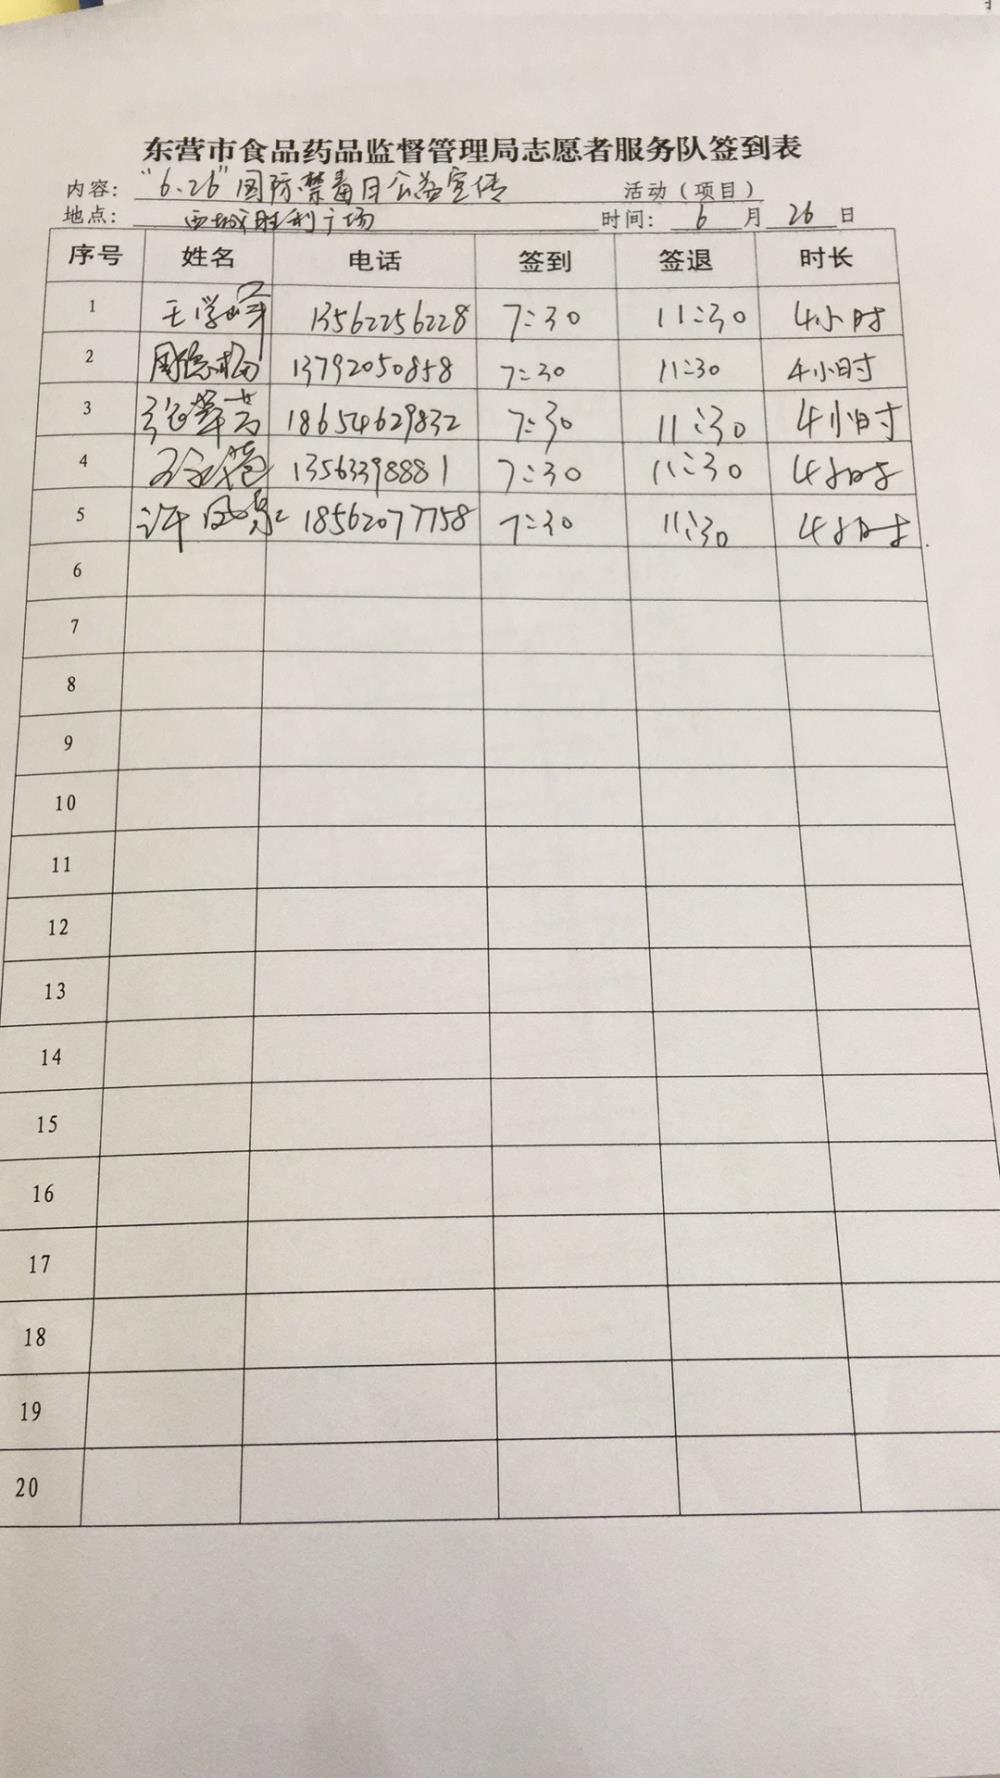 东营市食品药品监督管理局志愿者服务队签到表
内容: "6.26"国际禁毒日公益宣传 活动（项目）
地点: 西城胜利广场 时间: 6 月 26 日
序号 姓名 电话 签到 签退 时长
1 王学峰 13562256228 7:30 11:30 4小时
2 周德 13792050858 7:30 11:30 4小时
3 张翠芳 18654629832 7:30 11:30 4小时
4 13563398881 7:30 11:30 4小时
5 许凤 18562077758 7:30 11:30 4小时
6
7
8
9
10
11
12
13
14
15
16
17
18
19
20